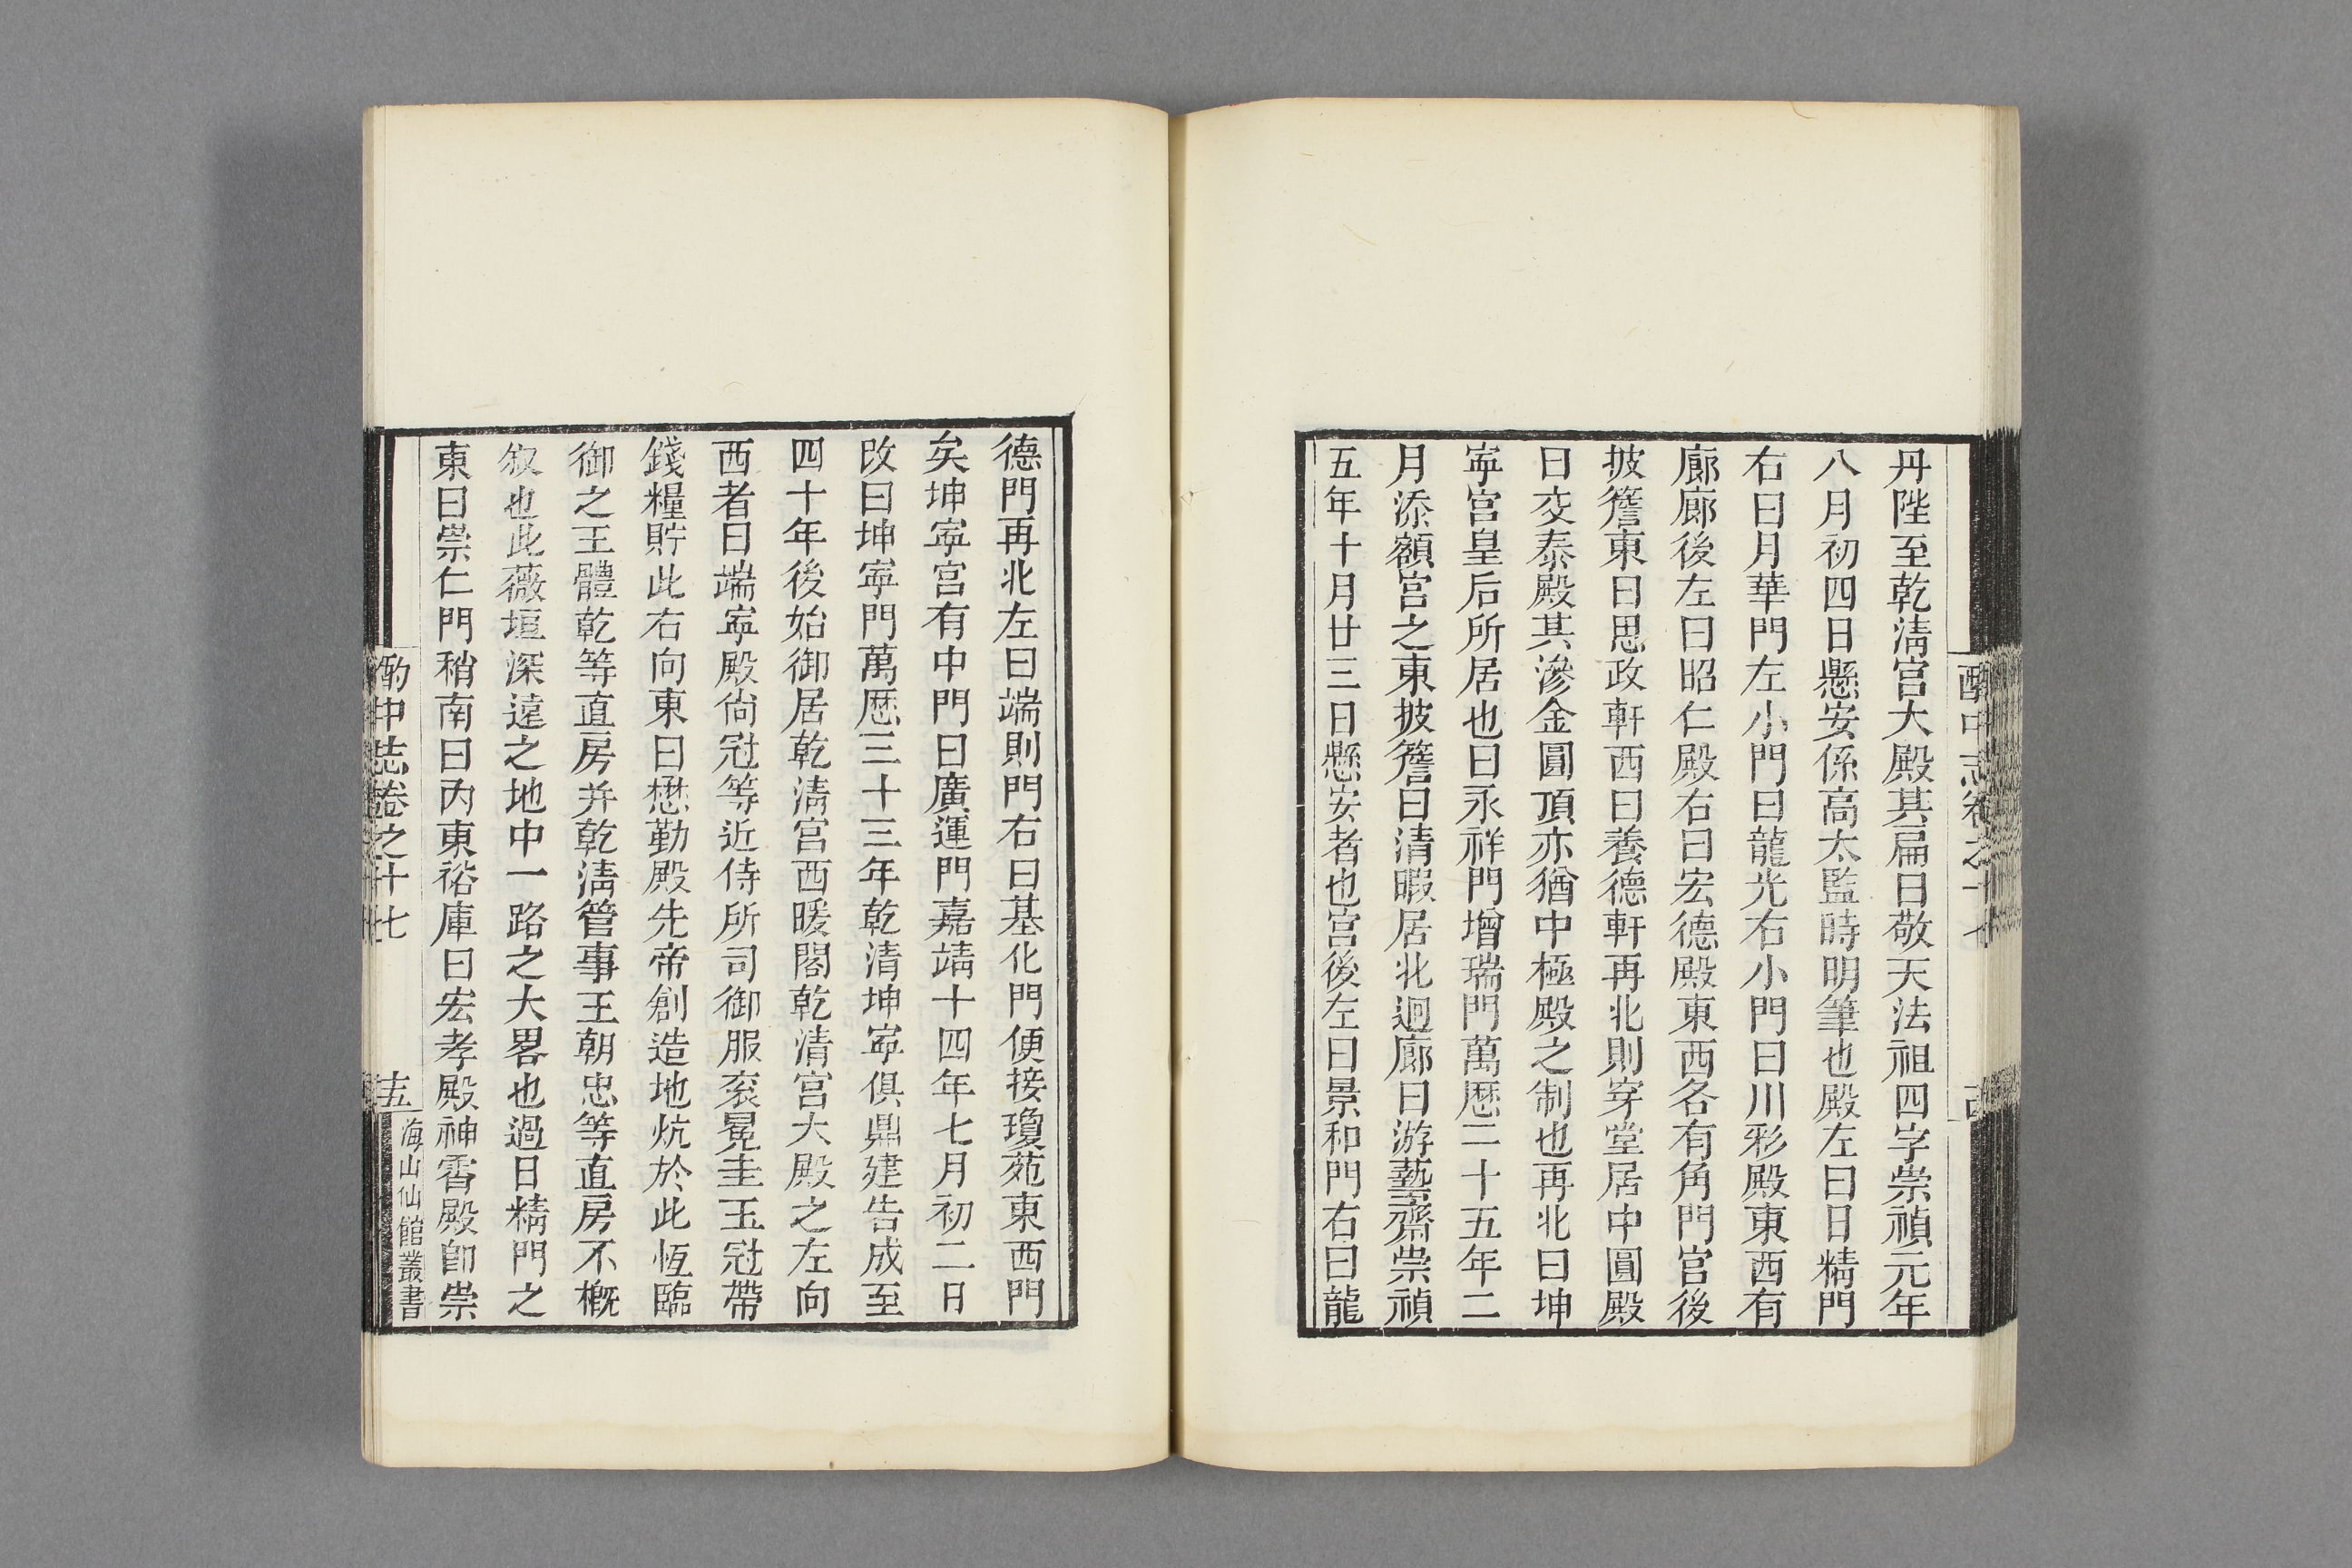 丹陛至乾淸宮大殿其扁曰敬天法祖四字崇禎元年
八月初四日懸安係高太監時明筆也殿左曰日精門
右曰月華門左小門曰龍光右小門曰川彩殿東西有
廊廊後左曰昭仁殿右曰宏德殿東西各有角門宮後
披簷東曰思政軒西曰養德軒再北則穿堂居中圓殿
曰交泰殿其滲金圓頂亦猶中極殿之制也再北曰坤
寧宮皇后所居也曰永祥門增瑞門萬厯二十五年二
月添額宮之東披簷曰清暇居北迴廊曰游藝齋崇禎
五年十月廿三日懸安者也宮後左曰景和門右曰龍
酌中志卷之十七
德門再北左曰端則門右曰基化門便接瓊苑東西門
矣坤寧宮有中門曰廣運門嘉靖十四年七月初二日
改曰坤寧門萬厯三十三年乾清坤寧俱鼎建告成至
四十年後始御居乾淸宮西暖閣乾清宮大殿之左向
西者曰端寧殿尙冠等近侍所司御服袞冕圭玉冠帶
錢糧貯此右向東曰懋勤殿先帝創造地炕於此恆臨
御之王體乾等直房并乾淸管事王朝忠等直房不概
叙也此薇垣深遠之地中一路之大畧也過日精門之
東曰崇仁門稍南曰內東裕庫曰宏孝殿神霄殿卽崇
酌中志卷之十七
十五
海山仙館叢書